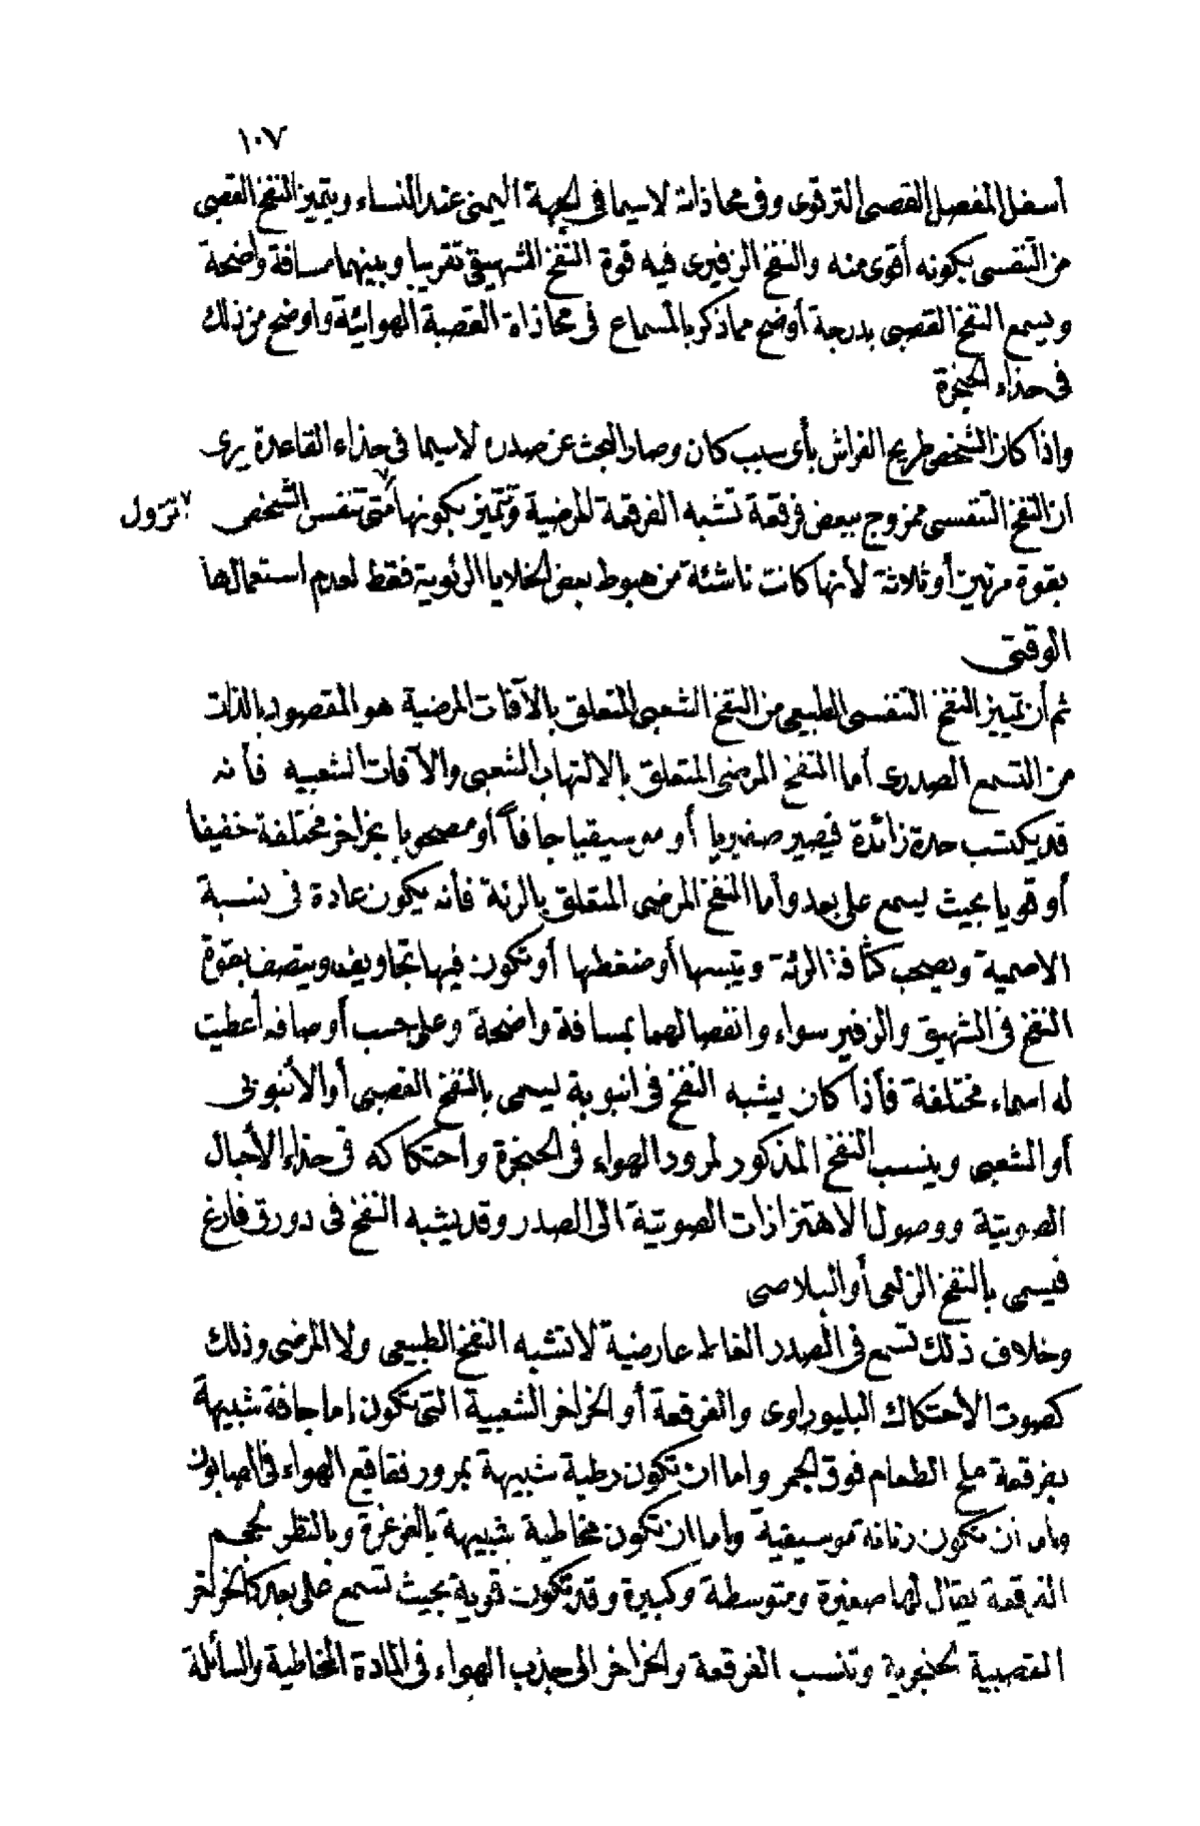 ١٠٧
أسفل المفصل القصى الترقوى وفى محاذاته لاسيما فى الجهة اليمنى عند النساء ويتميز النفخ القصبى
من التنفسى بكونه أقوى منه والنفخ الزفيرى فيه قوة النفخ الشهيقى تقريبا وبينهما مسافة واضحة
ويسمع النفخ القصبى بدرجة أوضح مما ذكر بالمسماع فى محاذاة القصبة الهوائية واوضح من ذلك
فى حذاء الحنجرة
واذا كان الشخص طريح الفراش بأى سبب كان وصار البحث عن صدره لاسيما فى حذاء القاعدة يرى
ان النفخ التنفسى ممزوج ببعض فرقعة تشبه الفرقعة المرضية وتتميز بكونها ٧ متى تنفس الشخص ٧ تزول
بقوة مرتين أو ثلاثة لأنها كانت ناشئة من هبوط بعض الخلايا الرئوية فقط لعدم استعمالها
الوقتى
ثم أن تمييز النفخ التنفسى الطبيعى من النفخ الشعبى المتعلق بالآفات المرضية هو المقصود بالذات
من التسمع الصدرى أما النفخ المرضى المتعلق بالالتهاب الشعبى والآفات الشعبيه فأنه
قد يكتسب حدة زائدة فيصير صفيريا أو موسيقيا جافاً أو مصحوبا بخراخر مختلفة خفيفا
أو قويا بحيث يسمع على بعد وأما النفخ المرضى المتعلق بالرئة فأنه يكون عادة فى نسبة
الاصمية ويصحب كثافة الرئة ويتبسها أو ضغطها أو تكون فيها تجاويف ويتصف بقوة
النفخ فى الشهيق والزفير سواء وانفصالهما بمسافة واضحة وعلى حسب أوصافه أعطيت
له اسماء مختلفة فأذا كان يشبه النفخ فى انبوبة يسمى بالنفخ القصبى أو الأنبوبى
أو الشعبى وينسب النفخ المذكور لمرور الهواء فى الحنجرة واحتكاكه فى حذاء الأحبال
الصوتية ووصول الاهتزازات الصوتية الى الصدر وقد يشبه النفخ فى دورق فارغ
فيسمى بالنفخ الزلعى أو البلاصى
وخلاف ذلك تسمع فى الصدر الغاط عارضية لا تشبه النفخ الطبيعى ولا المرضى وذلك
كصوت الأحتكاك البليوراوى والفرقعة أو الخراخر الشعبية التى تكون اما جافة شبيهة
بفرقعة ملح الطعام فوق الجمر واما ان تكون رطبة شبيهة بمرور فقاقيع الهواء فى الصابون
واما ان تكون رنانة موسيقية واما ان تكون مخاطية شبيهة بالغرغرة وبالنظر لحجم
الفرقعة يقال لها صغيرة ومتوسطة وكبيرة وقد تكون قوية بحيث تسمع على بعد كالخراخر
القصبية الحنجرية وتنسب الفرقعة والخراخر الى جذب الهواء فى المادة المخاطية والسائلة